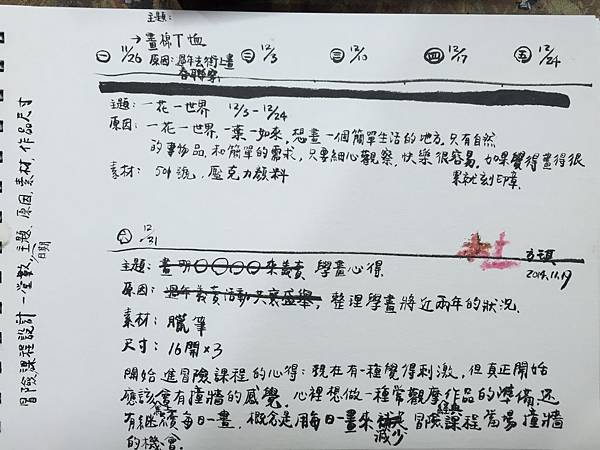 主題:
→畫棉T恤
㊀ 11/26 原因:過年去街上畫 ㊁ 12/3 ㊂ 12/10 ㊃ 12/17 ㊄ 12/24
春聯
主題: 一花一世界 12/3-12/24
原因: 一花一世界,一葉一如來,想畫一個簡單生活的地方,只有自然
的事物品,和簡單的需求,只要細心觀察,快樂很容易,如果覺得畫得很
累就刻印章.
素材: 50號,壓克力顏料
㊅ 12/31
2014.11.19
主題: 畫明○○○○來義賣 學畫心得
原因: 過年義賣活動共襄盛舉, 整理學畫將近兩年的狀況.
素材: 臘筆
尺寸: 16開×3
開始進冒險課程的心得:現在有一種覺得刺激,但真正開始
應該會有撞牆的感覺,心裡想做一種常觀摩作品的準備,還
有繼續每日一畫,概念是用每日一畫來減少冒險課程當場撞牆
的機會.
冒險課程設計-堂數,主題,原因,素材,作品尺寸
日期